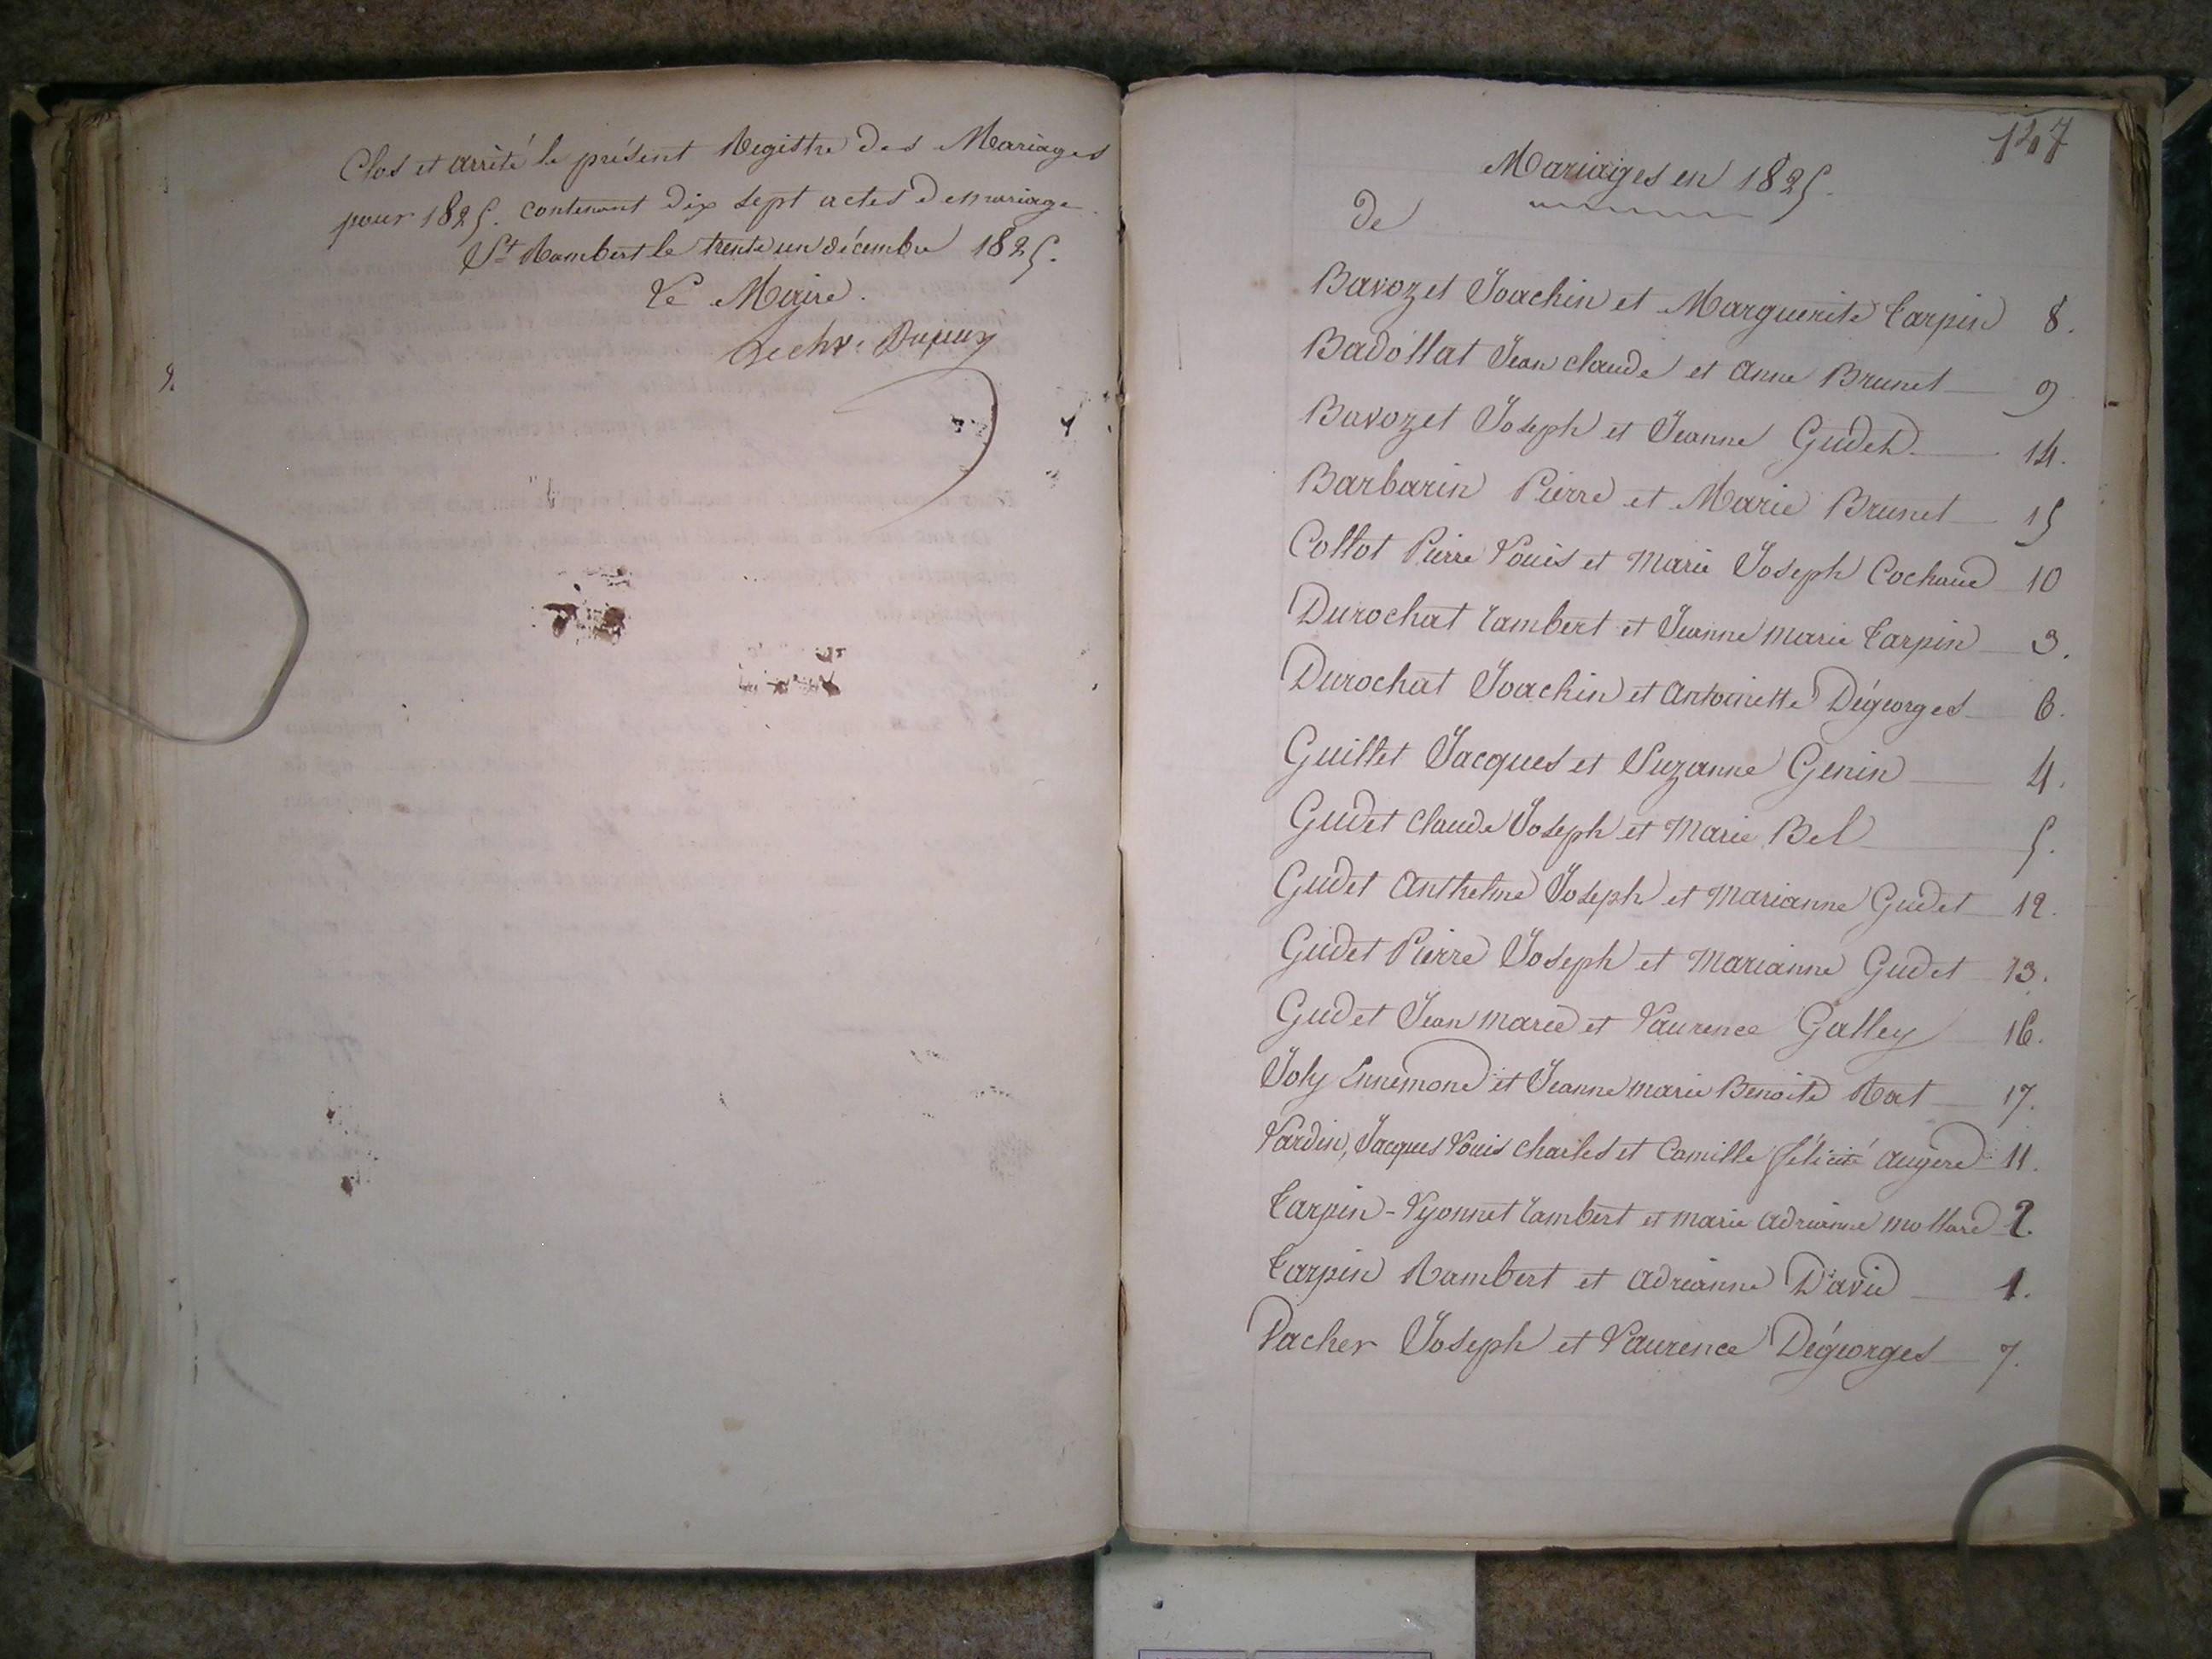 Clos et arrêté le présent Registre des Mariages
pour 1825. contenant dix sept actes de mariage.
St Rambert le trente un décembre 1825.
Le Maire.
Dupuy
147
Mariaiges en 1825.
de
Bavozet Joachin et Marguerite Tarpin 8.
Badollat Jean claude et Anne Brunet 9
Bavozet Joseph et Jeanne Gudet 14.
Barbarin Pierre et Marie Brunet 15
Collot Pierre Louis et Marie Joseph Cochaud 10
Durochat Lambert et Jeanne marie Tarpin 3.
Durochat Joachin et Antoinette Dégeorges 6.
Guillet Jacques et Suzanne Genin 4.
Gudet Claude Joseph et Marie Bel 5.
Gudet Anthelme Joseph et Marianne Gudet 12.
Gudet Pierre Joseph et Marianne Gudet 13.
Gudet Jean marie et Laurence Galley 16.
Joly Ennemond et Jeanne marie Benoite Rat 17.
Lardin, Jacques Louis Charles et Camille félicité Augerd 11.
Tarpin-Lyonnet Lambert et marie Adrianne mollard 2.
Tarpin Rambert et Adrianne David 1.
Vacher Joseph et Laurence Dégeorges 7.